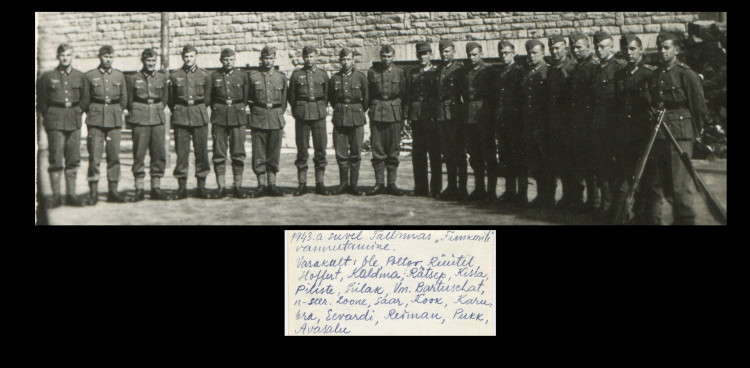 1943.a suvel Tallinnas „Finnkonti"
vannutamine.
Vasakult: Ole, Poltov, Rüütel
Hoffert, Kaldma, Rätsep, Kissa,
Piliste, Silak, Vm. Bartuschat,
n-seer. Loone, Saar, Kook, Karu,
Eevardi, Redman, Pukk,
Avasalu